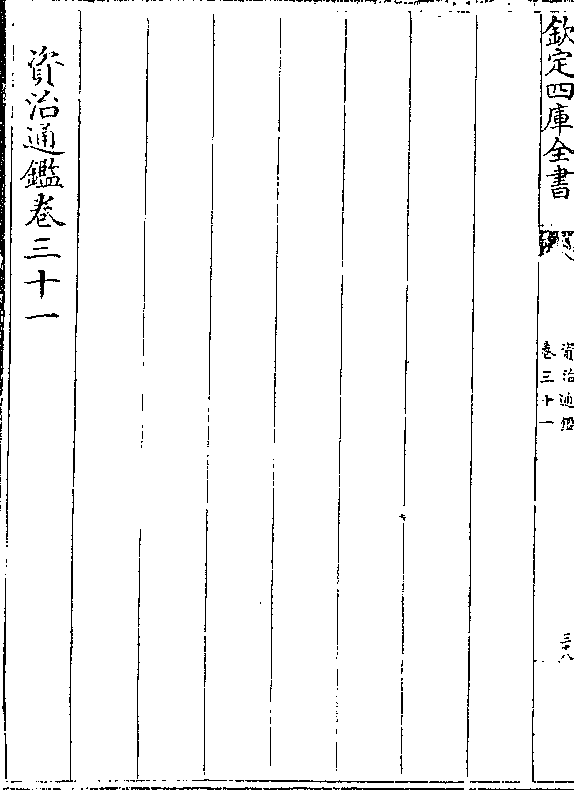 欽定四庫全書
資治通鑑
卷三十一
三十八
資治通鑑卷三十一